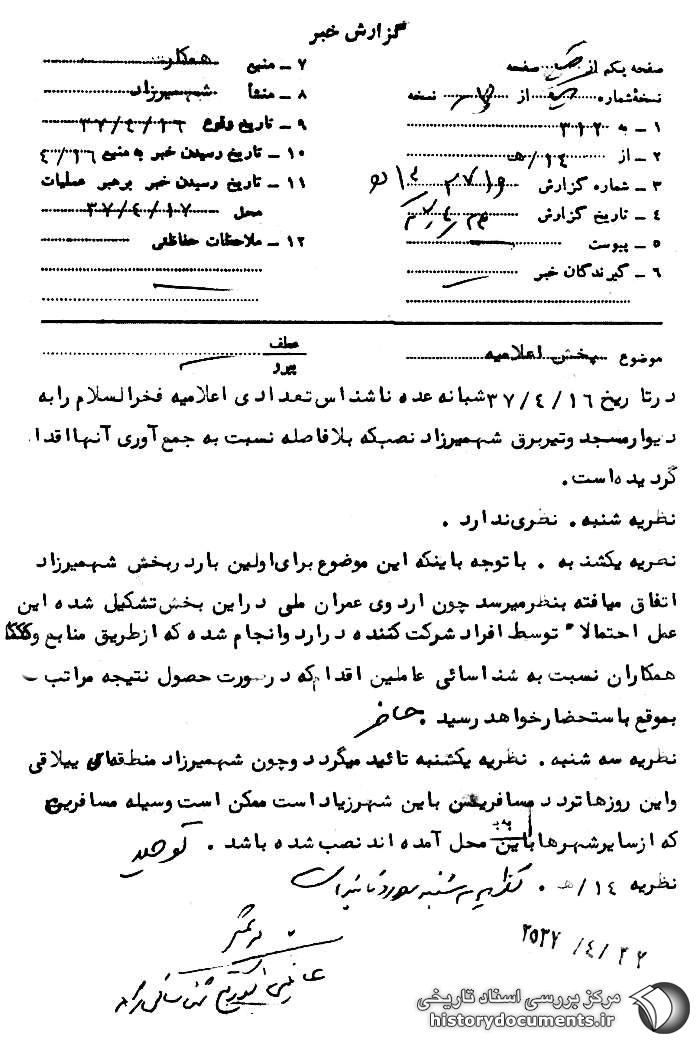 گزارش خبر
صفحه یکم از یک صفحه
نسخهٔ شماره از نسخه
۱ ــ به ۳۱۲
۲ ــ از ۱۴/ه‍
۳ ــ شماره گزارش
۴ ــ تاریخ گزارش
۵ ــ پیوست
۶ ــ گیرندگان خبر
۷ ــ منبع همکار
۸ ــ منشأ شهمیرزاد
۹ ــ تاریخ وقوع ۳۷/۴/۱۶
۱۰ ــ تاریخ رسیدن خبر به منبع ۴/۱۶
۱۱ ــ تاریخ رسیدن خبر برهبر عملیات
محل ۳۷/۴/۱۷
۱۲ ــ ملاحظات حفاظتی
موضوع پخش اعلامیه
عطف
پیرو
درتاریخ ۳۷/۴/۱۶ شبانه عده ناشناس تعدادی اعلامیه فخرالسلام رابه
دیوارمسجد وتیربرق شهمیرزاد نصبکه بلافاصله نسبت به جمع آوری آنهااقدا.
گردیده است.
نظریه شنبه. نظری ندارد.
نظریه یکشنبه. باتوجه باینکه این موضوع برای اولین بار دربخش شهمیرزاد
اتفاق میافته بنظرمیرسد چون اردوی عمران ملی دراین بخش تشکیل شده این
عمل احتمالا" توسط افراد شرکت کننده دراردوانجام شده که ازطریق منابع و
همکاران نسبت به شناسائی عاملین اقدام که درصورت حصول نتیجه مراتب
بموقع باستحضارخواهد رسید.
نظریه سه شنبه. نظریه یکشنبه تائید میگردد وچون شهمیرزاد منطقه‌ای ییلاقی
واین روزهاتردد مسافرین باین شهرزیاداست ممکن است وسیله مسافرین
که ازسایرشهرها باین محل آمده اند نصب شده باشد.
نظریه ۱۴/ه‍.
۲۵۳۷/۴/۲۲
مرکز بررسی اسناد تاریخی
historydocuments.ir